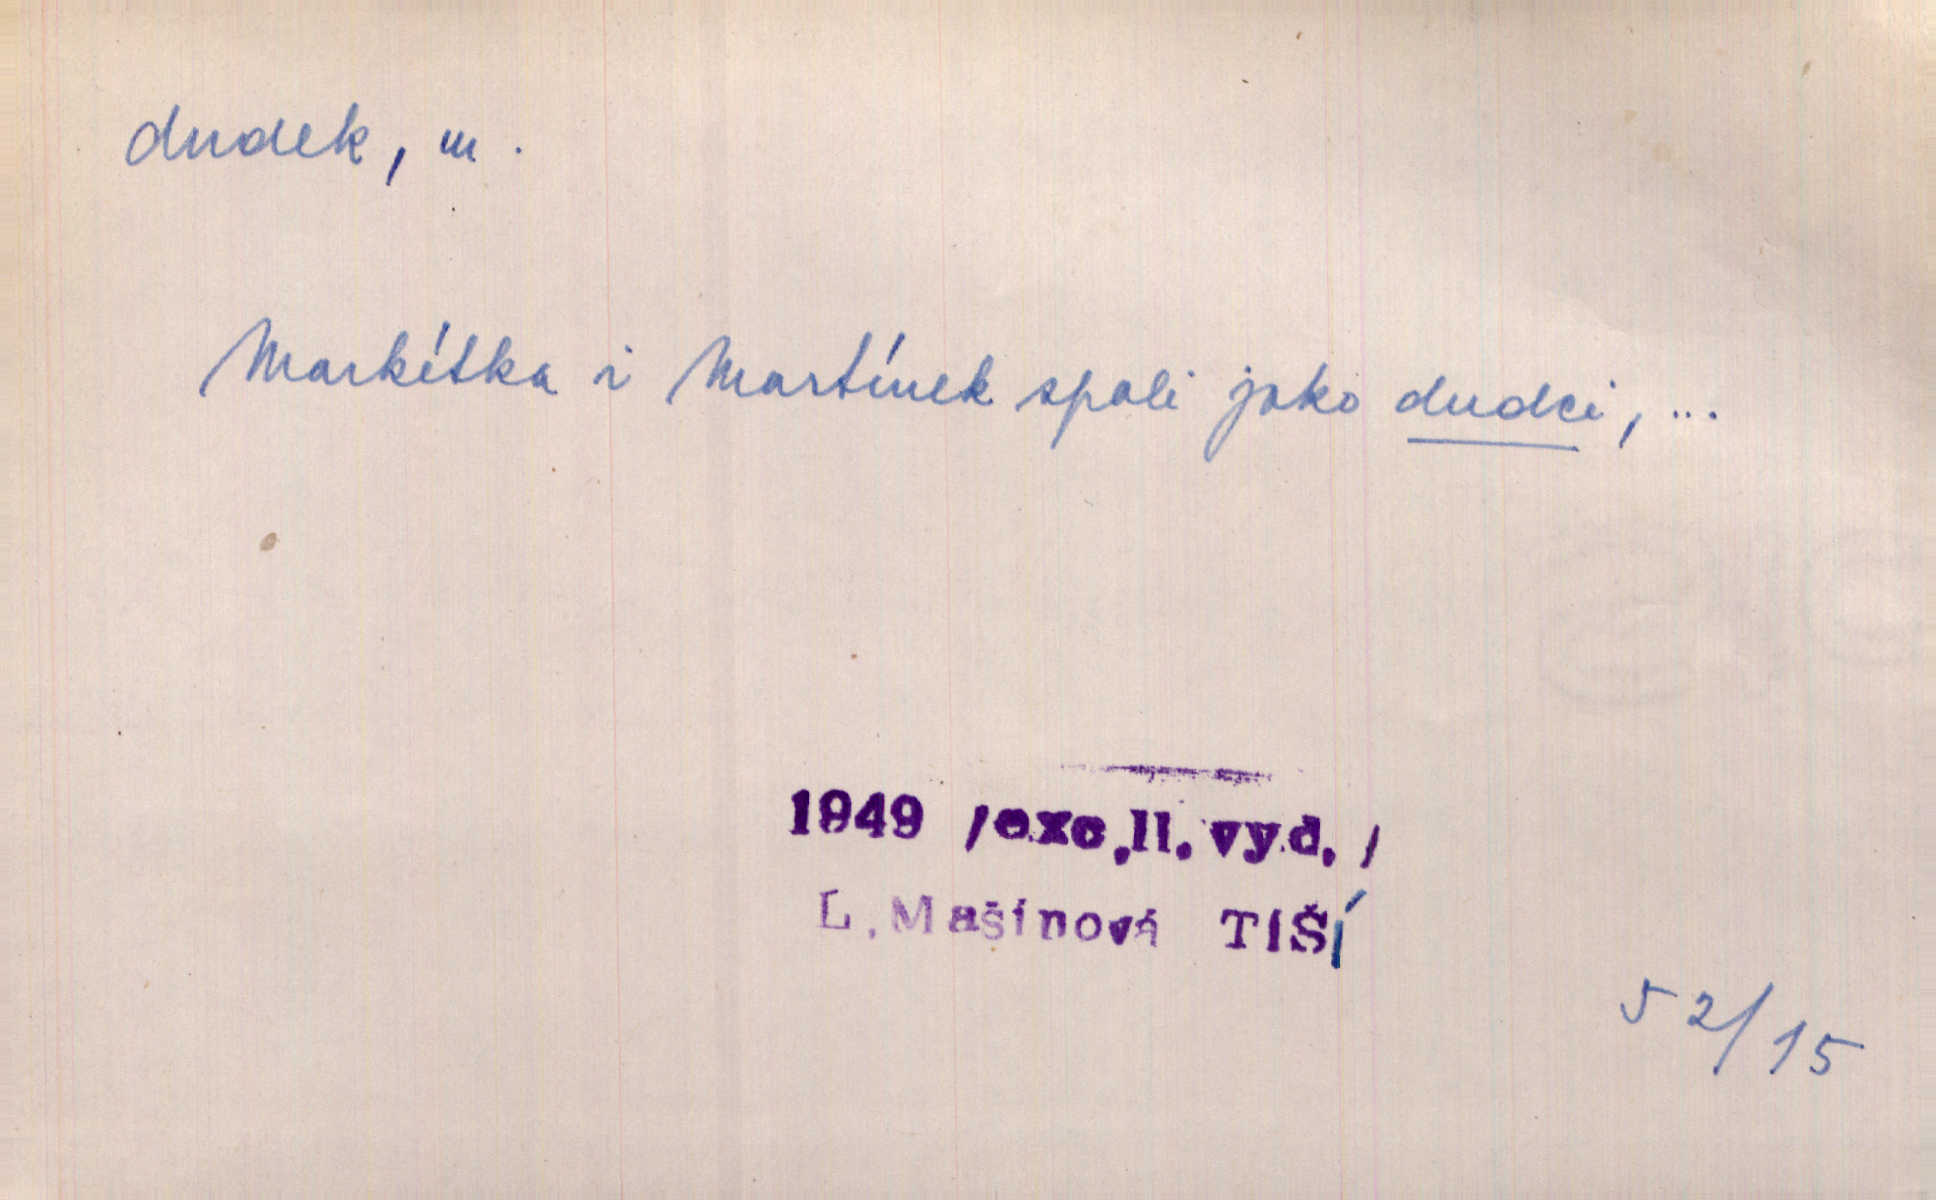 dudek, m.
Markétka i Martínek spali jako dudci, ...
1949 /exc.II.vyd./
L.Mašínová TIŠÍ
52/15